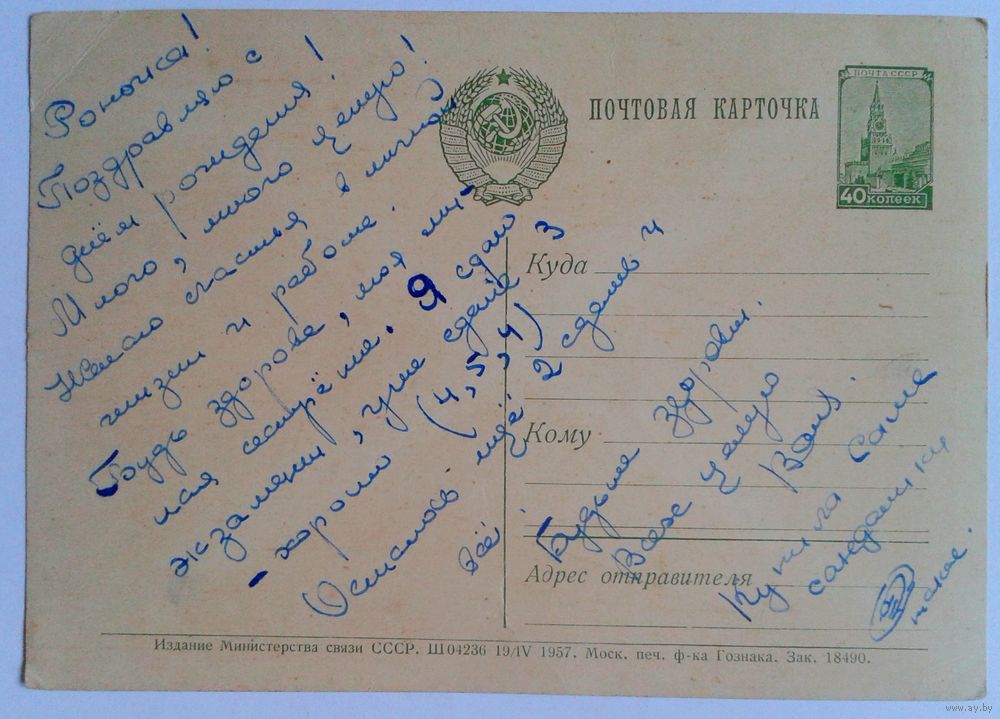 Роночка!
Поздравляю с
днём рождения!
Много, много целую!
Желаю счастья в личной
жизни и работе.
Будь здорова, моя ми-
лая сестрёнка. Я сдаю
экзамены, уже сдала 3
- хорошо (4, 5, 4)
Осталось ещё 2 сдать и
всё.
Будьте здоровы.
Всех целую
Валя.
Купила Саше
сандалики
такие.
ПОЧТОВАЯ КАРТОЧКА
ПОЧТА СССР
40 копеек
Куда
Кому
Адрес отправителя
Издание Министерства связи СССР. Ш 04236 19/IV 1957. Моск. печ. ф-ка Гознака. Зак. 18490.
www.ay.by